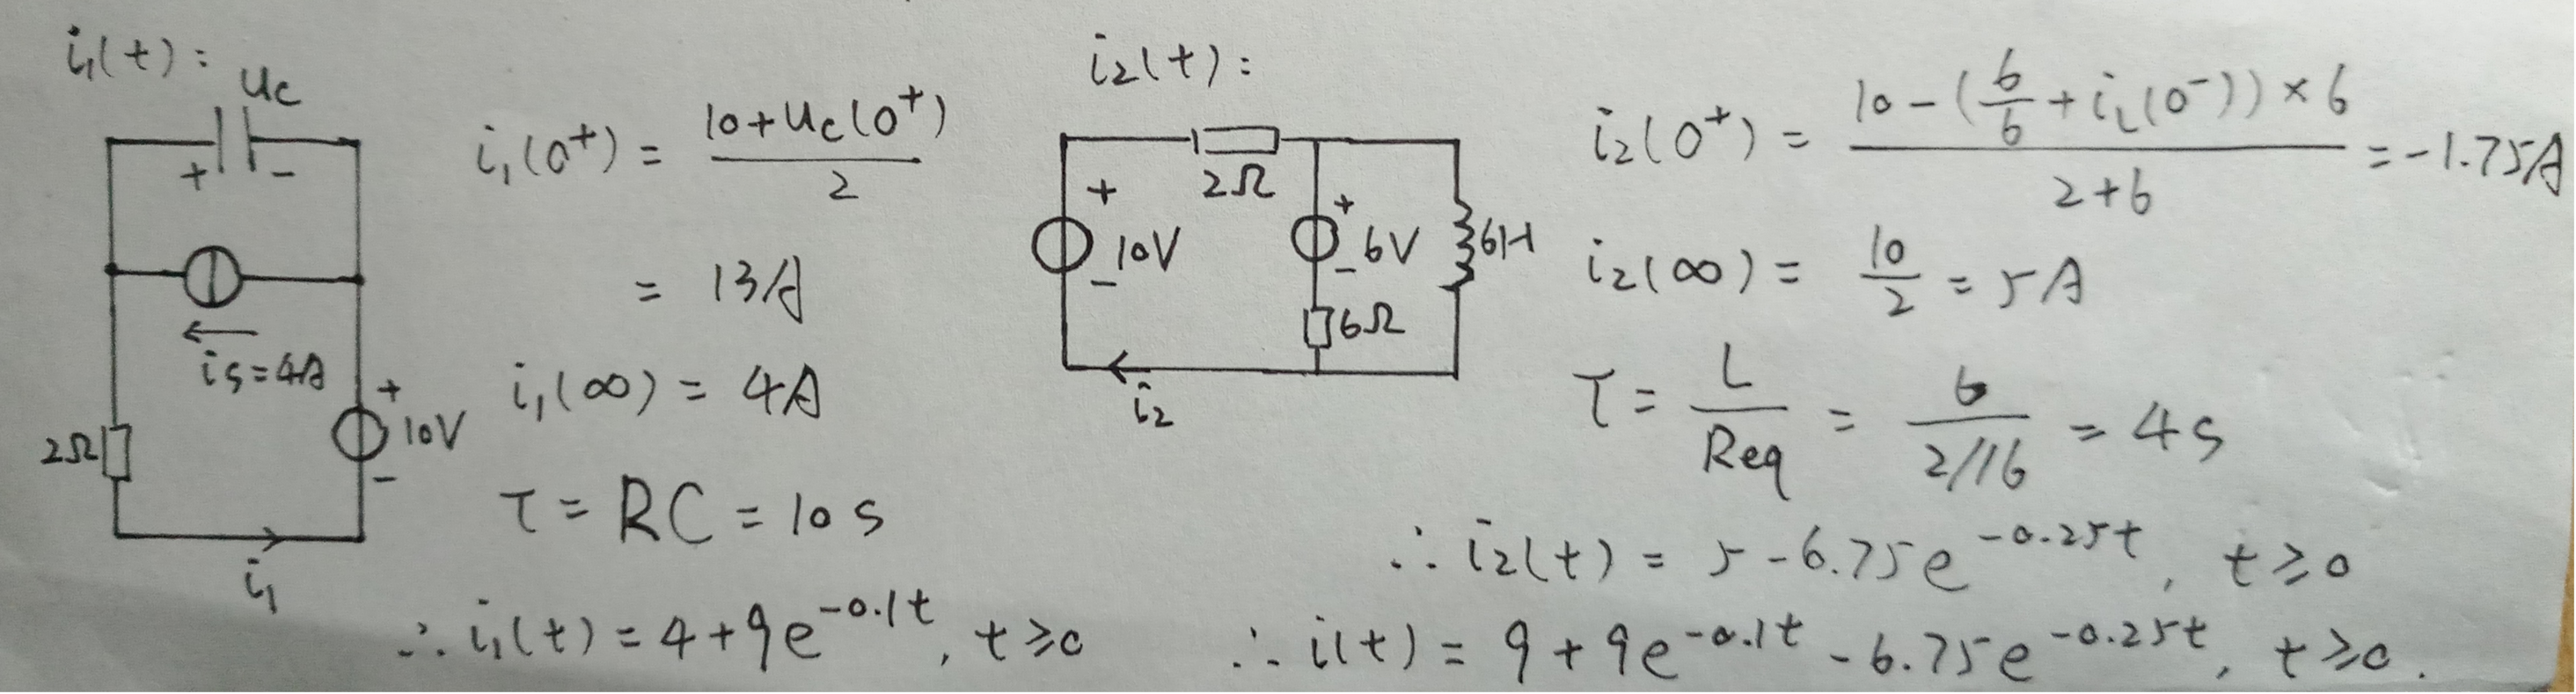 i₁(t):
uc
+ -
is=4A
2Ω
+
10V
-
i₁
i₁(0⁺) = (10+uc(0⁺))/2
= 13A
i₁(∞) = 4A
τ = RC = 10s
∴ i₁(t) = 4+9e^(-0.1t), t≥0
i₂(t):
2Ω
+
10V
-
+
6V
-
6Ω
6H
i₂
i₂(0⁺) = (10-(6/6+iL(0⁻))×6)/(2+6) = -1.75A
i₂(∞) = 10/2 = 5A
τ = L/Req = 6/(2//6) = 4s
∴ i₂(t) = 5-6.75e^(-0.25t), t≥0
∴ i(t) = 9+9e^(-0.1t)-6.75e^(-0.25t), t≥0.